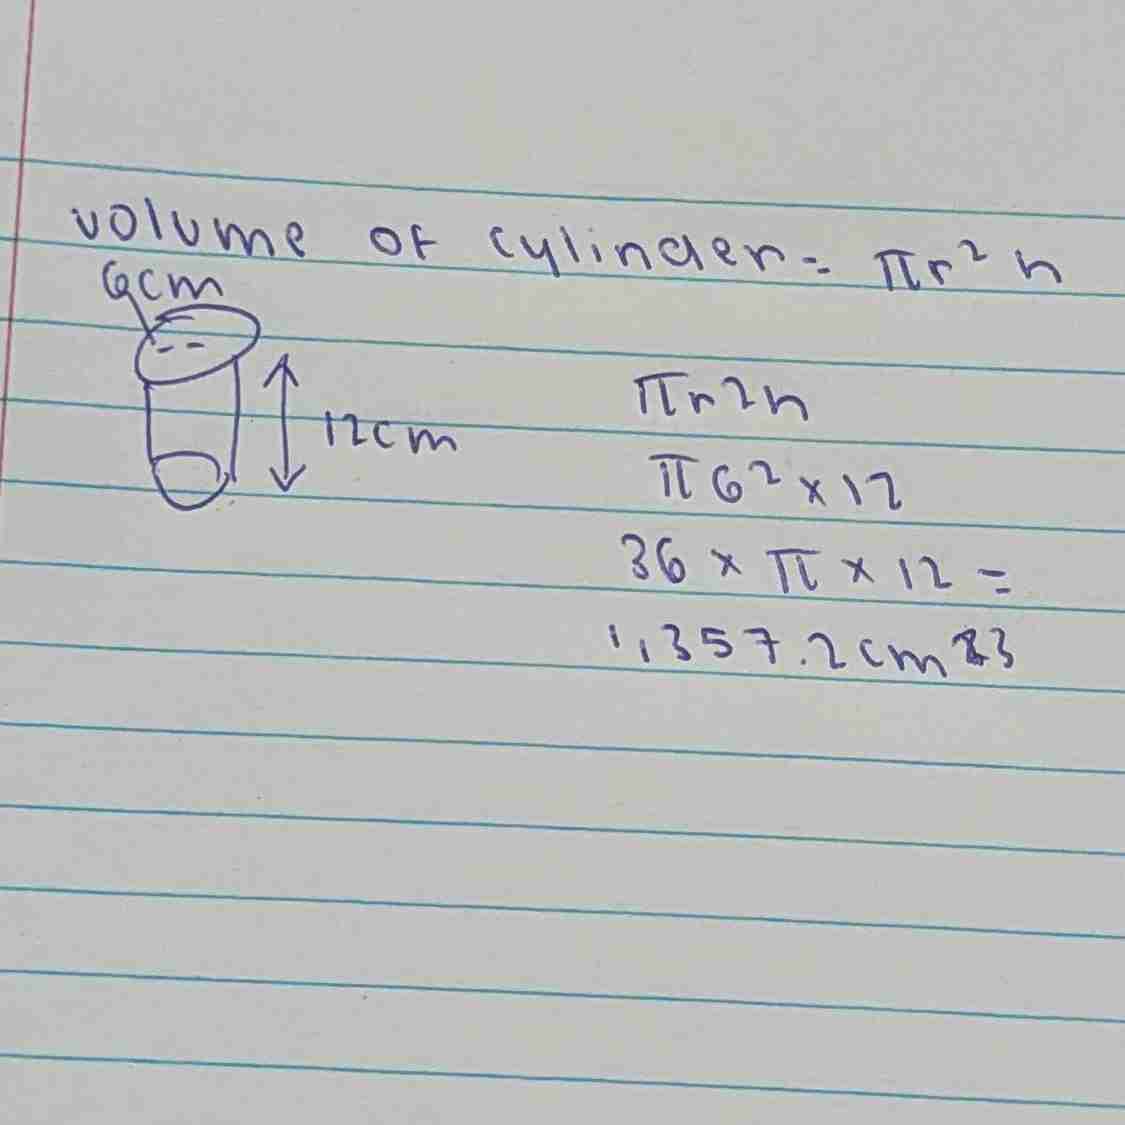 volume of cylinder = πr² h
6cm
12cm
πr2h
π 6² × 12
36 × π × 12 =
1,357.2cm 3